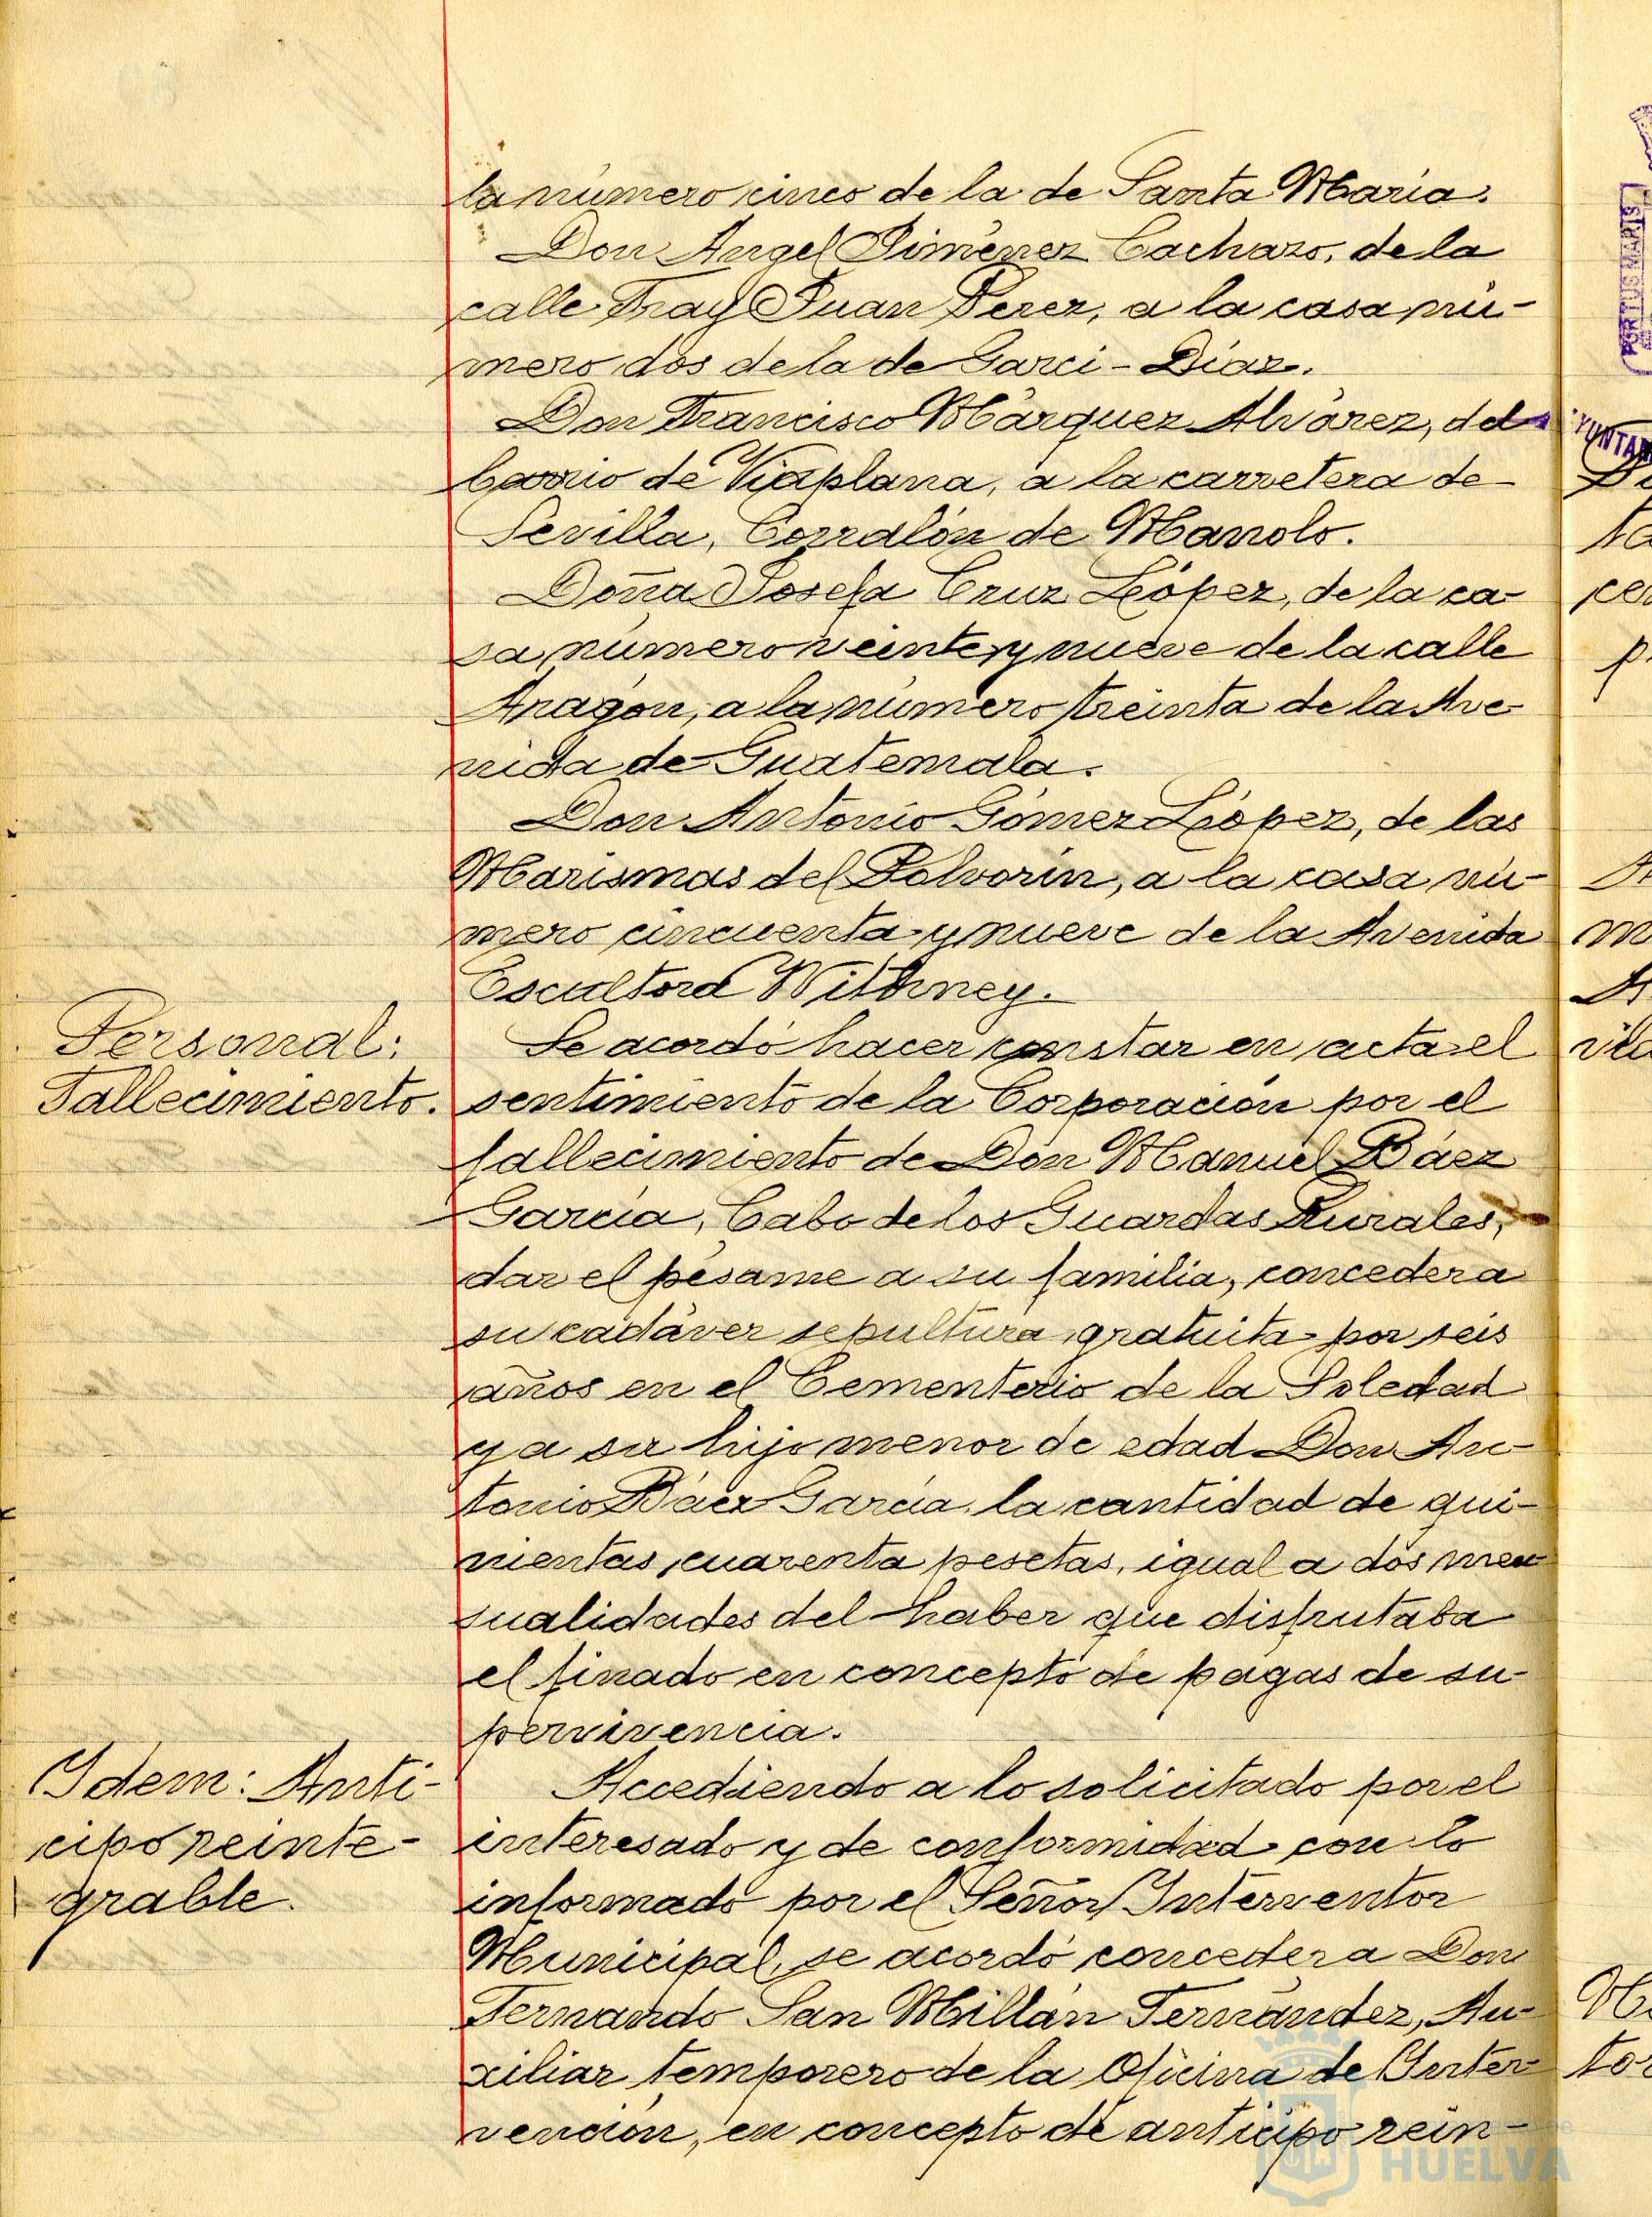 la número cinco de la de Santa María.
Don Angel Jiménez Cachazo, de la
calle Fray Juan Perez, a la casa nú-
mero dos de la de Garci-Díaz.
Don Francisco Márquez Alvárez, del
barrio de Viaplana, a la carretera de
Sevilla, Corralón de Manolo.
Doña Josefa Cruz López, de la ca-
sa número veinte y nueve de la calle
Aragón, a la número treinta de la Ave-
nida de Guatemala.
Don Antonio Gómez López, de las
Marismas del Polvorín, a la casa nú-
mero cincuenta y nueve de la Avenida
Escultora Withney.
Personal:
Fallecimiento.
Se acordó hacer constar en acta el
sentimiento de la Corporación por el
fallecimiento de Don Manuel Báez
García, Cabo de los Guardas Rurales,
dar el pésame a su familia, conceder a
su cadáver sepultura gratuita por seis
años en el Cementerio de la Soledad
y a su hijo menor de edad Don An-
tonio Báez García la cantidad de qui-
nientas cuarenta pesetas, igual a dos men-
sualidades del haber que disfrutaba
el finado en concepto de pagas de su-
pervivencia.
Idem: Anti-
cipo reinte-
grable.
Accediendo a lo solicitado por el
interesado y de conformidad con lo
informado por el Señor Interventor
Municipal, se acordó conceder a Don
Fernando San Millán Fernández, Au-
xiliar temporero de la Oficina de Inter-
vención, en concepto de anticipo rein-
PORTUS MARIS
HUELVA